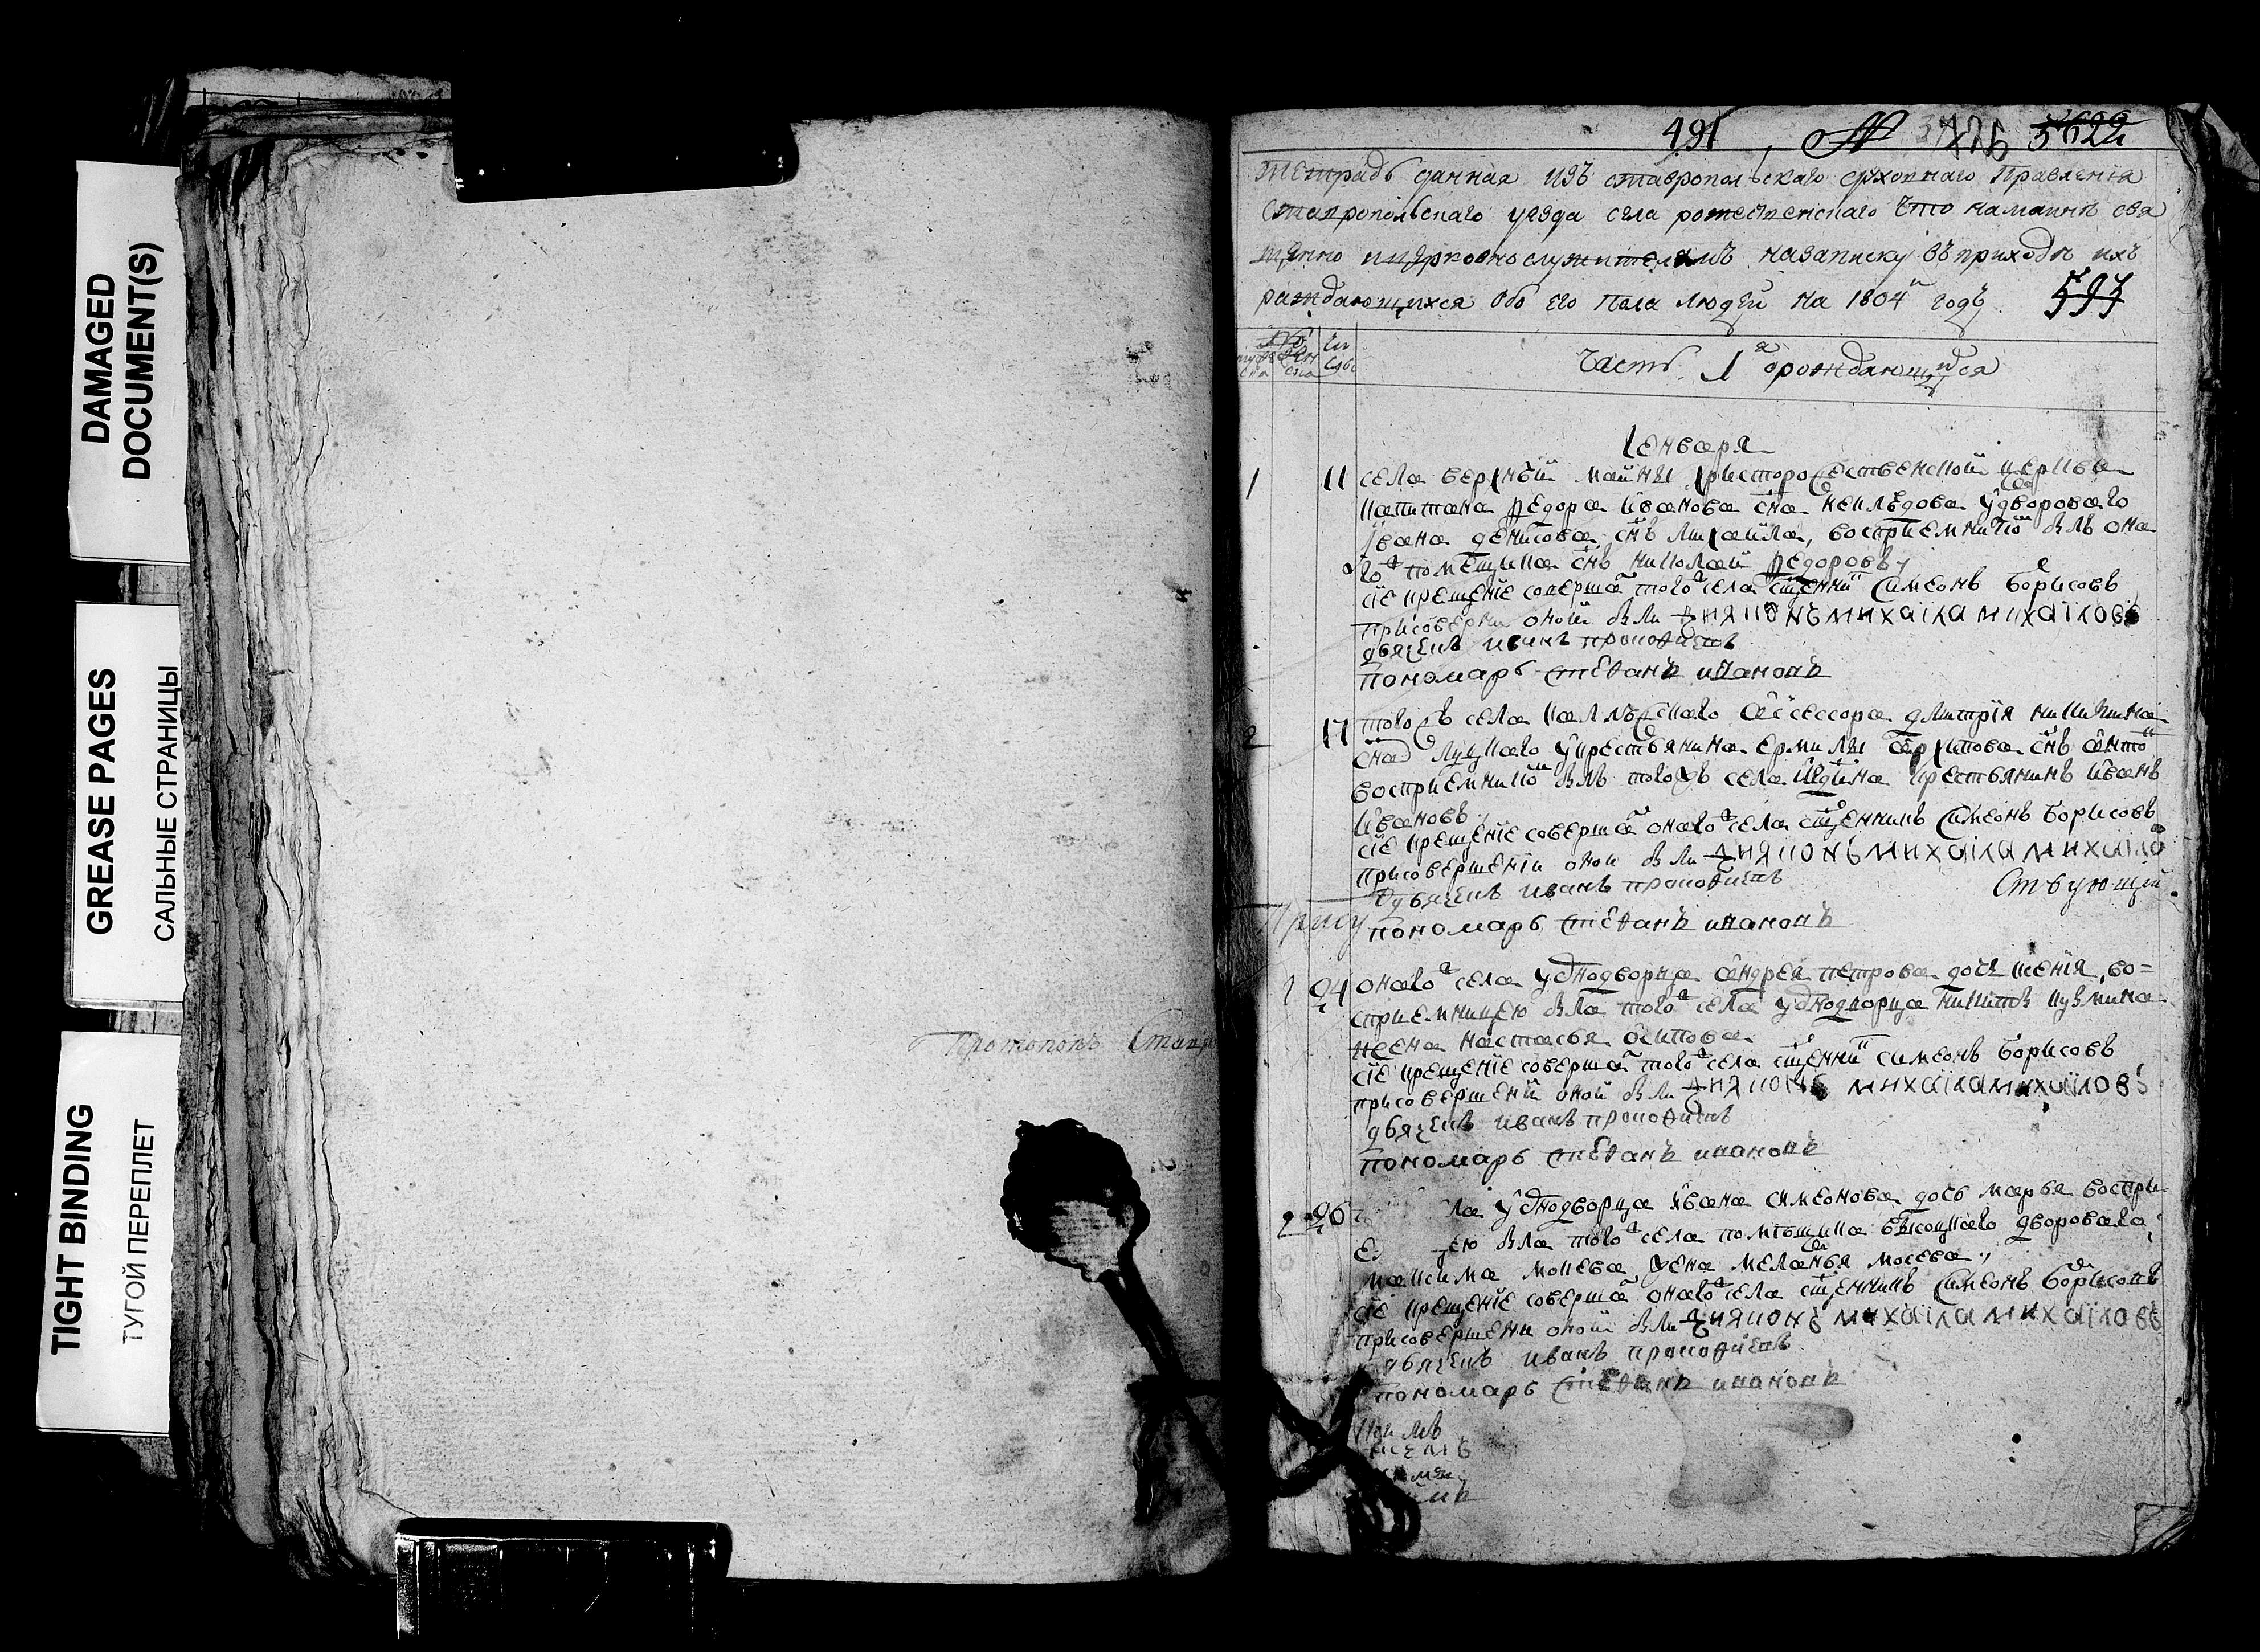 DAMAGED
DOCUMENT(S)
GREASE PAGES
САЛЬНЫЕ СТРАНИЦЫ
TIGHT BINDING
ТУГОЙ ПЕРЕПЛЕТ
Протопопъ Ставр
491 № 5622
Тетрадь данная изъ ставропольскаго духовнаго Правления
Ставропольскаго уезда села рожественскаго что на маине свя
щенно и церковнослужителямъ на записку въ приходе ихъ
раждающихся обо его пола людей на 1804й годъ 593
Часть 1я о раждающихся
Генваря
1 11 села верхнъй майны христорожественской церкви
капитана федора иванова сна неклюдова у двороваго
ивана денисова снъ михайла, восприемнико былъ она
го помещика снъ николай федоровъ
сие крещение соверша того села сщенни симеонъ борисовъ
при соверши оной были дияконъ михаила михаиловъ
дьячекъ иванъ прокофьевъ
пономарь стефанъ ивановъ
2 17 того жъ села ассессора дмитрия
сна у крестьянина ермилы снъ анто
восприемнико былъ того жъ села крестьянинъ иванъ
ивановъ
сие крещение соверша онаго села сщенникъ симеонъ борисовъ
при совершении оной были дияконъ михаила михаило
дьячекъ иванъ прокофьевъ Ствующий
Прису пономарь стефанъ ивановъ
1 24 онаго села у однодворца андрея петрова дочь ксения, во=
сприемницею была того села у однодворца никиты кузмина
жена настасья осипова
сие крещение соверша того села сщенни симеонъ борисовъ
при совершений оной были дияконъ михаила михаиловъ
дьячекъ иванъ прокофьевъ
пономарь стефанъ ивановъ
2 26 ла у однодворца ивана симеонова дочь марья воспри
е цею была того села помещика двороваго
максима жена меланья
сие крещение соверша онаго села сщенникъ симеонъ борисовъ
при совершени оной были дияконъ михаила михаиловъ
дьячекъ иванъ прокофьевъ
пономарь стефанъ ивановъ